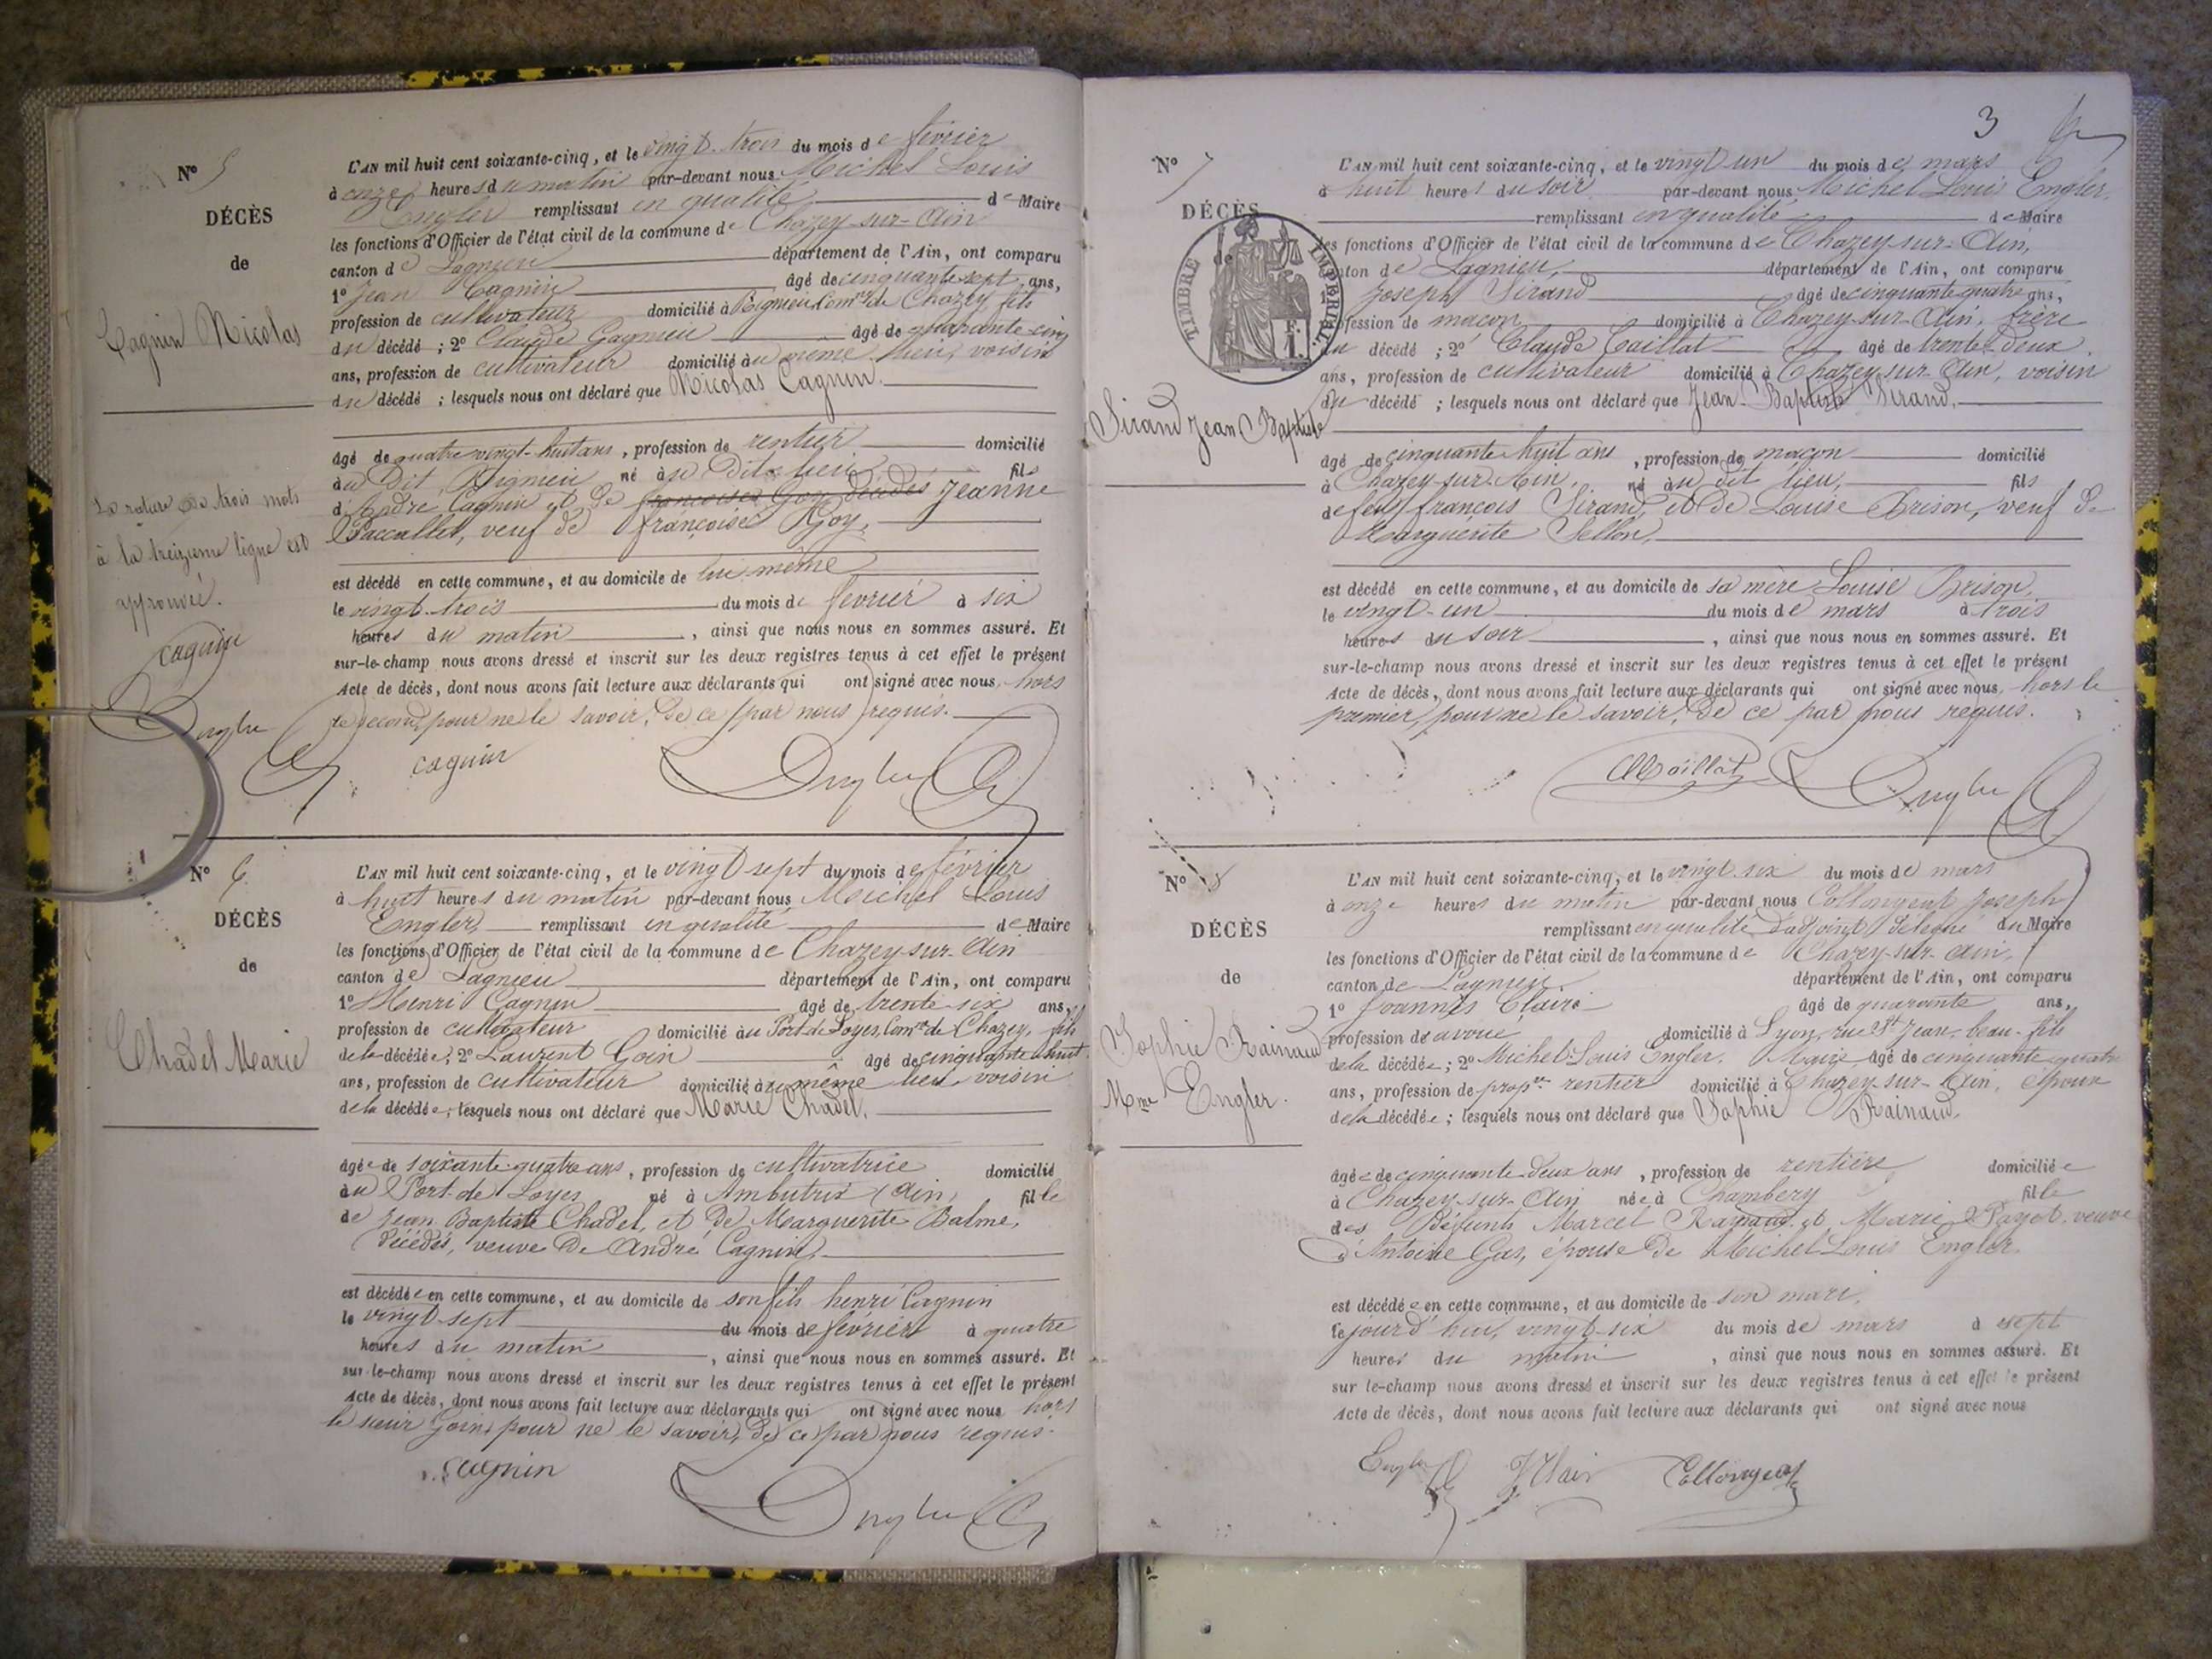 N° 5
DÉCÈS
de
Cagnin Nicolas
La rature de trois mots
à la treizième ligne est
approuvée.
Cagnin
Engler
L'AN mil huit cent soixante-cinq, et le vingt-trois du mois de février
à onze heures du matin par-devant nous Michel Louis
Engler remplissant en qualité de Maire
les fonctions d'Officier de l'état civil de la commune de Chazey-sur-Ain
canton de Lagnieu département de l'Ain, ont comparu
1° Jean Cagnin âgé de cinquante-sept ans,
profession de cultivateur domicilié à Rignieu Com.ne de Chazey, fils
du décédé ; 2° Claude Gagneu âgé de quarante-cinq
ans, profession de cultivateur domicilié au même lieu, voisin
du décédé ; lesquels nous ont déclaré que Nicolas Cagnin.
âgé de quatre vingt-huit ans, profession de rentier domicilié
au Dit Rignieu né au Dit-lieu fils
d'André Cagnin et de françoise Goy décédés Jeanne
Paccallet, veuf de françoise Goy,
est décédé en cette commune, et au domicile de lui même
le vingt-trois du mois de février à six
heures du matin, ainsi que nous nous en sommes assuré. Et
sur-le-champ nous avons dressé et inscrit sur les deux registres tenus à cet effet le présent
Acte de décès, dont nous avons fait lecture aux déclarants qui ont signé avec nous, hors
le second, pour ne le savoir, de ce par nous requis.
cagnin Engler
N° 6
DÉCÈS
de
Chadel Marie
L'AN mil huit cent soixante-cinq, et le vingt sept du mois de février
à huit heures du matin par-devant nous Michel Louis
Engler, remplissant en qualité de Maire
les fonctions d'Officier de l'état civil de la commune de Chazey-sur-Ain
canton de Lagnieu département de l'Ain, ont comparu
1° Henri Cagnin âgé de trente-six ans,
profession de cultivateur domicilié au Port-de-Loyes, Com.ne de Chazey, fils
de la décédée ; 2° Laurent Goin âgé de cinquante huit
ans, profession de cultivateur domicilié au même lieu voisin
de la décédée ; lesquels nous ont déclaré que Marie Chadel,
âgée de soixante-quatre ans, profession de cultivatrice domicilié
au Port-de-Loyes né à Ambutrix (Ain) fille
de Jean Baptiste Chadel, et de Marguerite Balme,
décédés, veuve de André Cagnin,
est décédée en cette commune, et au domicile de son fils henri Cagnin
le vingt-sept du mois de février à quatre
heures du matin, ainsi que nous nous en sommes assuré. Et
sur-le-champ nous avons dressé et inscrit sur les deux registres tenus à cet effet le présent
Acte de décès, dont nous avons fait lecture aux déclarants qui ont signé avec nous hors
le sieur Goin, pour ne le savoir, de ce par nous requis.
cagnin
Engler
3
N° 7
DÉCÈS
de
TIMBRE IMPERIAL
F. 1.
Sirand Jean Baptiste
L'AN mil huit cent soixante-cinq, et le vingt un du mois de mars
à huit heures du soir par-devant nous Michel Louis Engler,
remplissant en qualité de Maire
les fonctions d'Officier de l'état civil de la commune de Chazey-sur-Ain,
canton de Lagnieu, département de l'Ain, ont comparu
Joseph Sirand âgé de cinquante quatre ans,
profession de maçon domicilié à Chazey-sur-Ain, frère
du décédé ; 2° Claude Caillat âgé de trente-deux
ans, profession de cultivateur domicilié à Chazey-sur-Ain, voisin
du décédé ; lesquels nous ont déclaré que Jean-Baptiste Sirand,
âgé de cinquante huit ans, profession de maçon domicilié
à Chazey-sur-Ain, né au dit lieu, fils
de feu françois Sirand, et de Louise Brison, veuf de
Marguerite Sellon,
est décédé en cette commune, et au domicile de sa mère Louise Brison,
le vingt-un du mois de mars à trois
heures du soir, ainsi que nous nous en sommes assuré. Et
sur-le-champ nous avons dressé et inscrit sur les deux registres tenus à cet effet le présent
Acte de décès, dont nous avons fait lecture aux déclarants qui ont signé avec nous, hors le
premier, pour ne le savoir, de ce par nous requis.
Engler
N° 8
DÉCÈS
de
Sophie Rainaud
Mme Engler.
L'AN mil huit cent soixante-cinq, et le vingt six du mois de mars
à onze heures du matin par-devant nous Collongeat Joseph
remplissant en qualité d'adjoint délégué du Maire
les fonctions d'Officier de l'état civil de la commune de Chazey-sur-Ain,
canton de Lagnieu. département de l'Ain, ont comparu
1° Joannès Claire âgé de quarante ans,
profession de avoué domicilié à Lyon, rue St Jean, beau-fils
de la décédée ; 2° Michel-Louis Engler, Maire âgé de cinquante quatre
ans, profession de prop.re rentier domicilié à Chazey-sur-Ain, époux
de la décédée ; lesquels nous ont déclaré que Sophie Rainaud,
âgée de cinquante-deux ans, profession de rentière domiciliée
à Chazey-sur-Ain née à Chambéry fille
des Défunts Marcel Raynaud et Marie Payot, veuve
d'Antoine Gas, épouse de Michel-Louis Engler.
est décédée en cette commune, et au domicile de son mari,
le jourd'hui, vingt-six du mois de mars à sept
heures du matin, ainsi que nous nous en sommes assuré. Et
sur le-champ nous avons dressé et inscrit sur les deux registres tenus à cet effet le présent
Acte de décès, dont nous avons fait lecture aux déclarants qui ont signé avec nous
Engler J Clair Collongeat